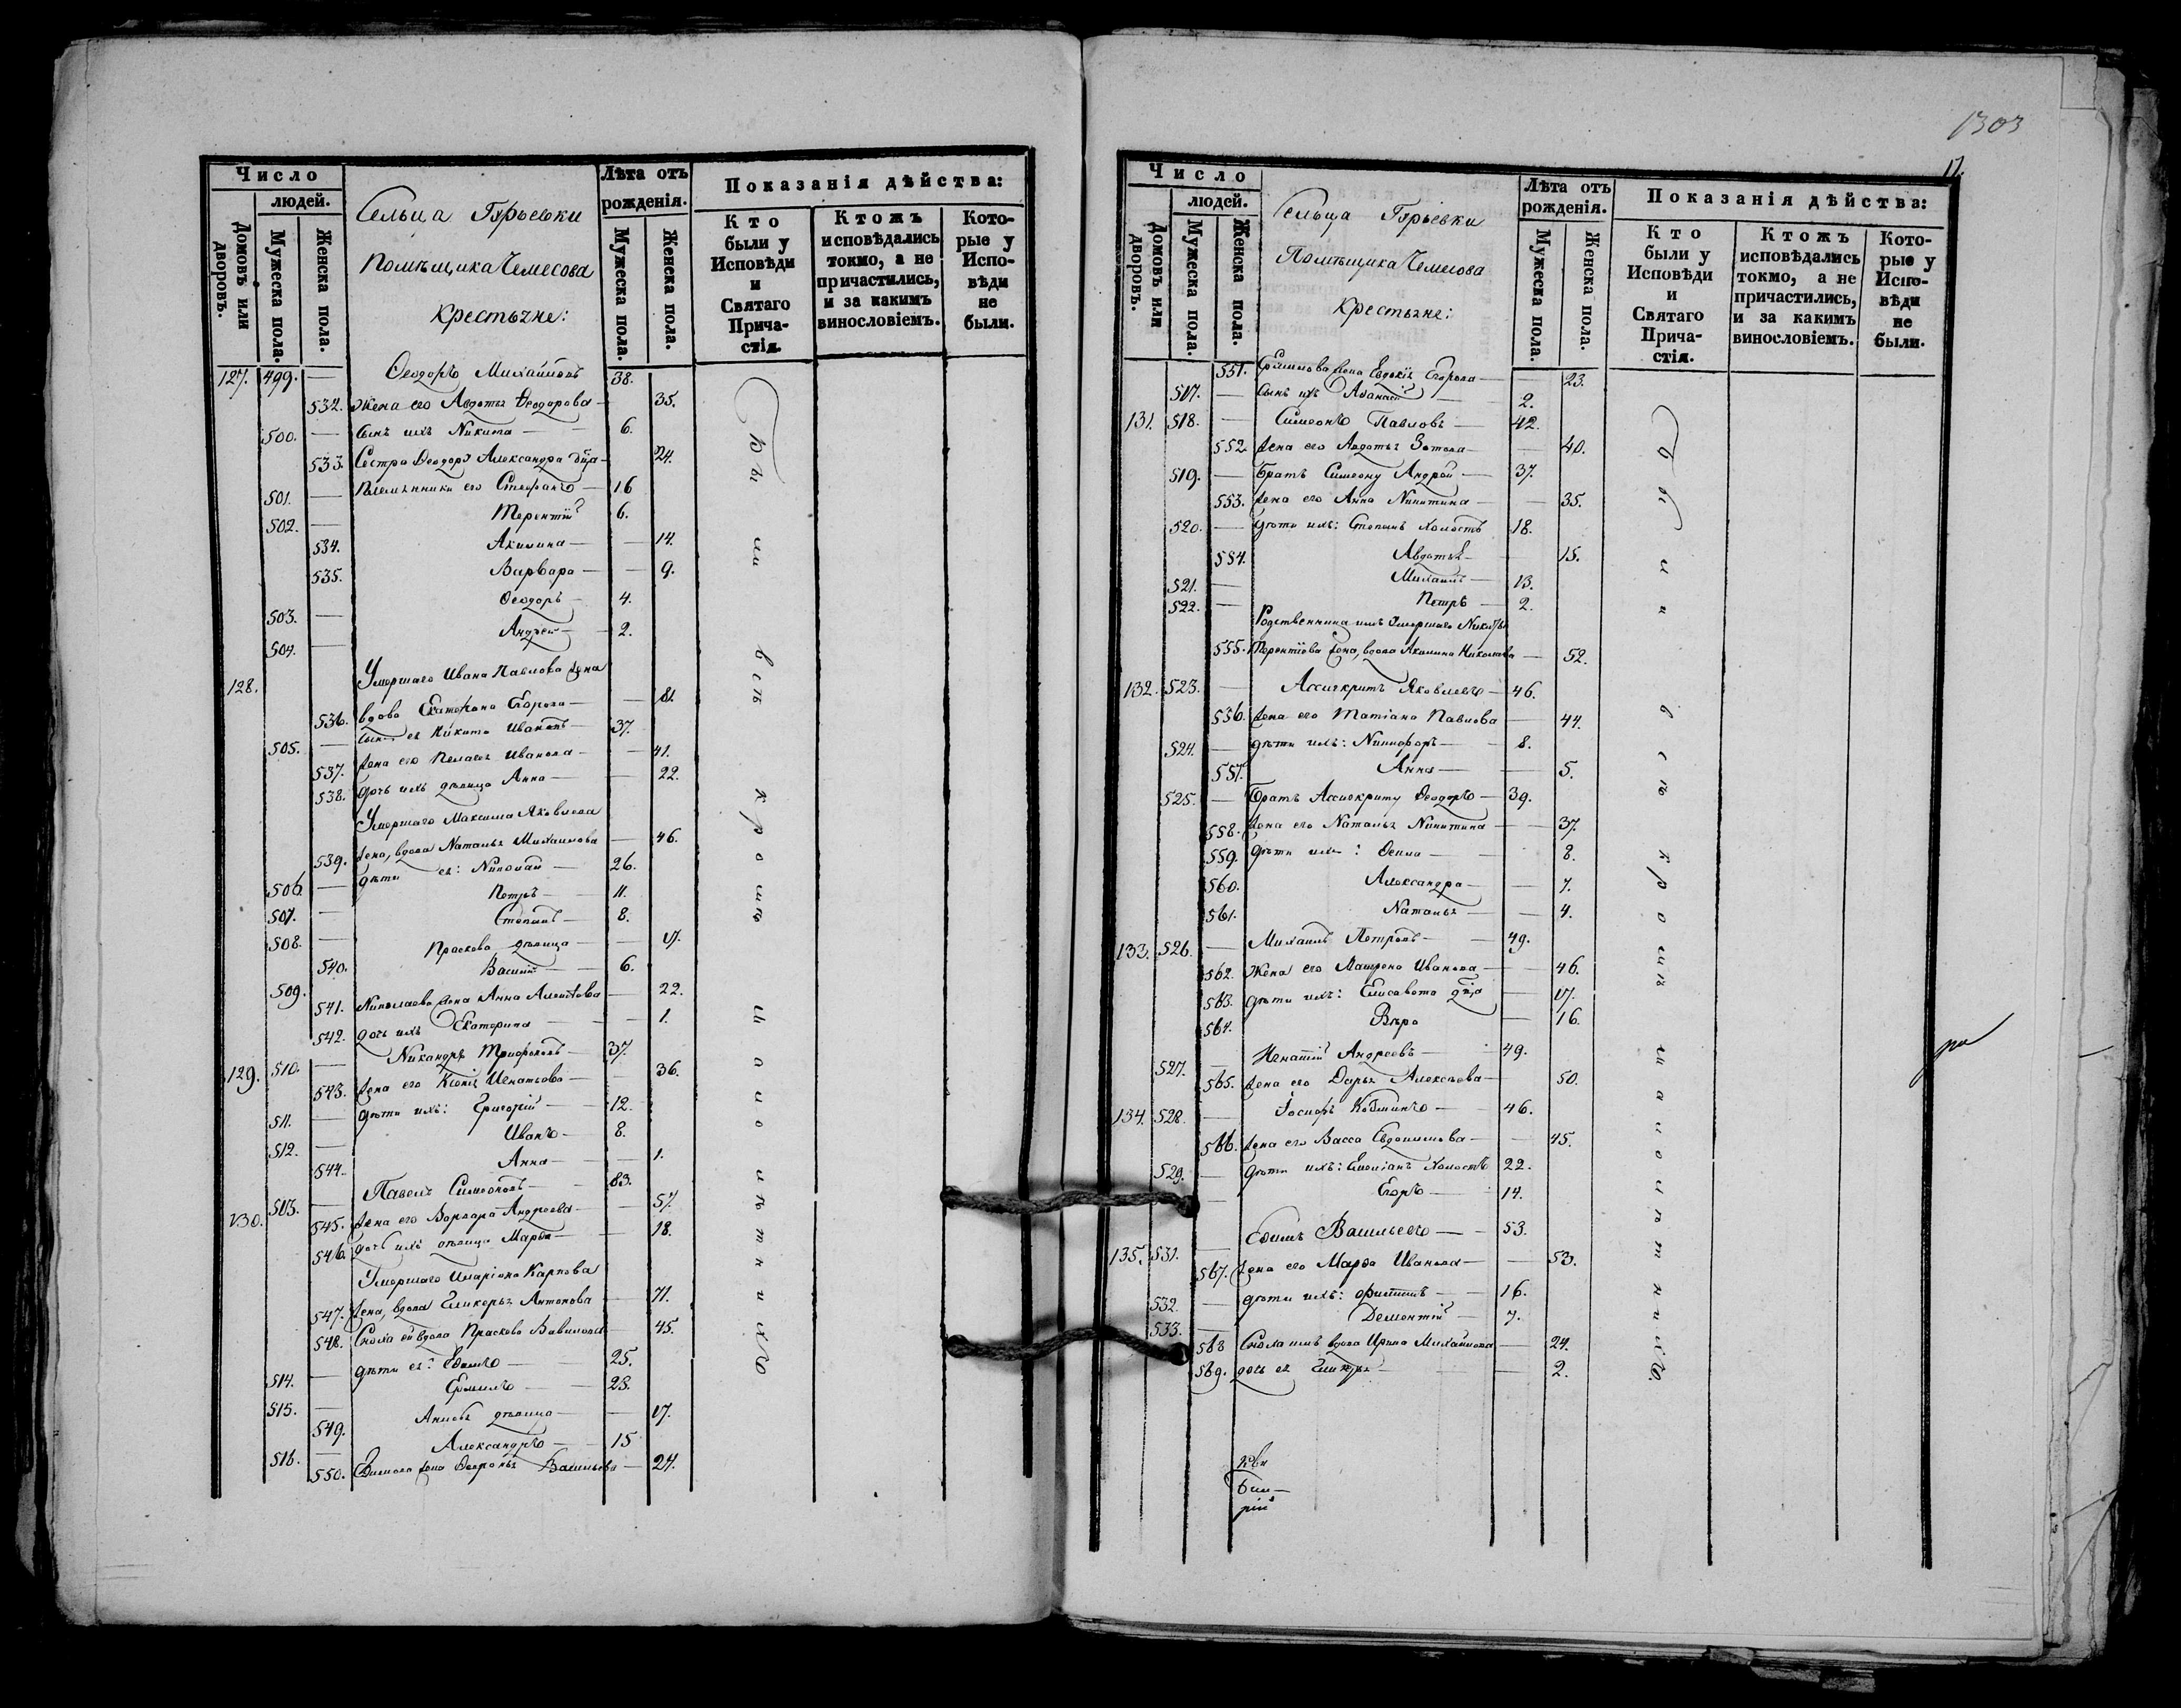 Число
людей.
Домовъ или дворовъ.
Мужеска пола.
Женска пола.
Сельца Гурьевки
Помѣщика Чемесова
крестьяне:
Лѣта отъ рожденія.
Мужеска пола.
Женска пола.
Показанія дѣйства:
Кто были у Исповѣди и Святаго Прича-стія.
Ктожъ исповѣдались токмо, а не причастились, и за какимъ винословіемъ.
Кото-рые у Испо-вѣди не были.
127. 499. — Ѳеодоръ Михайловъ 38.
532. Жена его Авдотья Ѳеодорова — 35.
500. — Сынъ ихъ Никита — 6.
533. Сестра Ѳеодора Александра дѣца — 24.
501. — Племянники его Стефанъ — 16
502. — Терентій 6.
534. Акилина — — 14.
535. Варвара — — 9.
503. — Ѳеодоръ — 4.
504. — Андрей — 2.
128. Умершаго Ивана Павлова жена
536. вдова Екатерина Егорова — — 81.
505. — Сынъ ея Никита Ивановъ 37.
537. жена его Пелагея Иванова — — 41.
538. дочь ихъ дѣвица Анна — — 22.
Умершаго Максима Яковлева
539. жена, вдова Наталья Михайлова — 46.
506. — дѣти ея: Николай — 26.
507. — Петръ — 11.
508. — Степанъ — 8.
540. Прасковья дѣвица — — 17.
509. Василій — 6.
541. Николаева жена Анна — 22.
542. дочь ихъ Екатерина — — 1.
129. 510. — Никандръ Трифоновъ — 37.
543. жена его Ксенія Игнатьева — 36.
511. — дѣти ихъ: Григорій — 12.
512. — Иванъ — 8.
544. Анна — — 1.
130. 513. — Павелъ Симеоновъ — 83.
545. жена его Варвара Андреева — — 57.
546. дочь ихъ дѣвица Марѳа — — 18.
Умершаго Иларіона Карпова
547. жена, вдова Гликерья Антонова — 71.
548. Сноха ей вдова Прасковья Вавилова — 45.
514. — дѣти ея: Ефимъ — 25.
515. — Ермилъ — 23.
549. Анисья дѣвица — — 17.
516. — Александръ — 15
550. Ефимова жена Васильева — 24.
Были
всѣ
кромѣ
малолѣтнихъ
1303
17.
Число
людей.
Домовъ или дворовъ.
Мужеска пола.
Женска пола.
Сельца Гурьевки
Помѣщика Чемесова
крестьяне:
Лѣта отъ рожденія.
Мужеска пола.
Женска пола.
Показанія дѣйства:
Кто были у Исповѣди и Святаго Прича-стія.
Ктожъ исповѣдались токмо, а не причастились, и за какимъ винословіемъ.
Кото-рые у Испо-вѣди не были.
551. Ермилова жена Евдокія Егорова — — 23.
517. — Сынъ ихъ Аѳанасій — 2.
131. 518. — Симеонъ Павловъ — 42.
552. жена его Авдотья Зотова — — 40.
519. — Братъ Симеону Андрей — 37.
553. жена его Анна Никитина — — 35.
520. — дѣти ихъ: Степанъ холостъ 18.
554. Авдотья — — 15.
521. — Михаилъ — 13.
522. — Петръ — 2.
Родственница имъ Умершаго Никиты
555. Терентіева жена, вдова Акилина Николаева — 52.
132. 523. — Ассигкритъ Яковлевъ — 46.
536. жена его Татіана Павлова — 44.
524. — дѣти ихъ: Никифоръ — 8.
557. Анна — — 5.
525. — Братъ Ассигкриту Ѳеодоръ — 39.
558. жена его Наталья Никитина — — 37.
559. дѣти ихъ: Ѳекла — — 8.
560. Александра — — 7.
561. Наталья — — 4.
133. 526. — Михаилъ Петровъ — 49.
562. Жена его Матрена Иванова — — 46.
563. дѣти ихъ: Елисавета дѣца — 17.
564. Вѣра — 16.
527. — Игнатій Андреевъ — 49.
565. жена его Дарья Алексѣева — 50.
134. 528. — Іосифъ Козминъ — 46.
566. жена его Васса Евдокимова — — 45.
529. — дѣти ихъ: Емеліанъ холостъ 22.
— Егоръ — 14.
135. 531. — Ефимъ Васильевъ — 53.
567. жена его Марѳа Иванова — — 53.
532. — дѣти ихъ: Филиппъ — 16.
533. — Дементій — 7.
568 Сноха имъ вдова Ирина Михайлова — 24.
569. дочь ея Гликерья — — 2.
Были
всѣ
кромѣ
малолѣтнихъ.